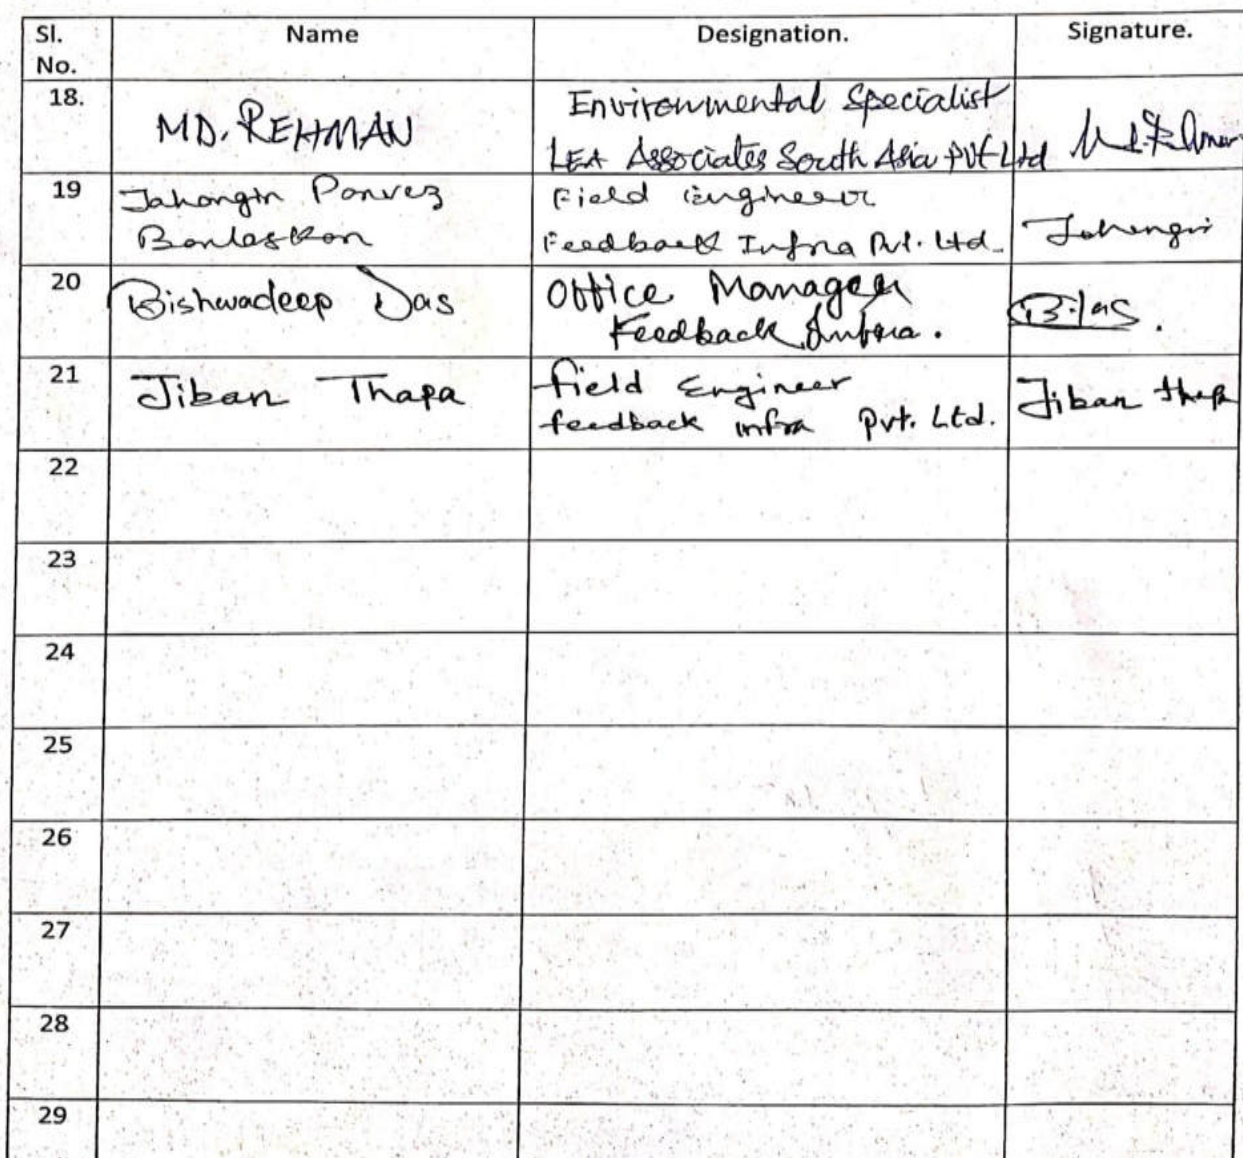 Sl. No. Name Designation. Signature.
18. MD. REHMAN Environmental Specialist
LEA Associates South Asia Pvt Ltd
19 Jahangir Parvez Field Engineer
Feedback Infra Pvt. Ltd. Jahangir
20 Bishwadeep Das Office Manager
Feedback Infra. B.Das.
21 Jiban Thapa field Engineer Jiban Thapa
feedback infra Pvt. Ltd.
22
23
24
25
26
27
28
29